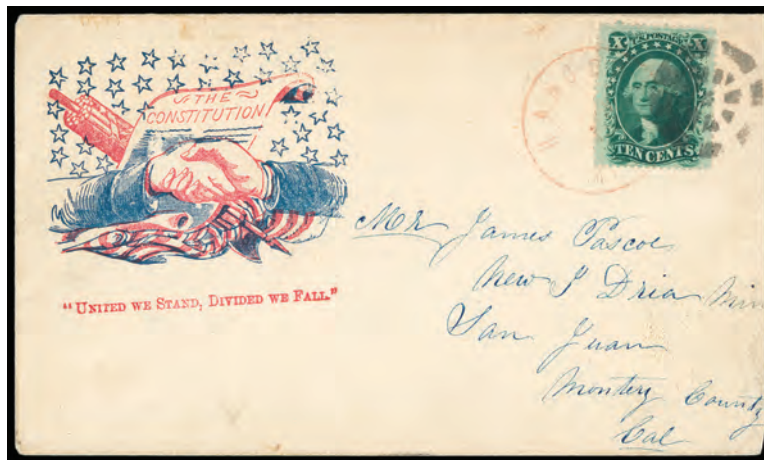 THE
CONSTITUTION
"UNITED WE STAND, DIVIDED WE FALL."
X U.S. POSTAGE X
TEN CENTS
Mr James Pascoe
New I Dria Min
San Juan
Montery County
Cal